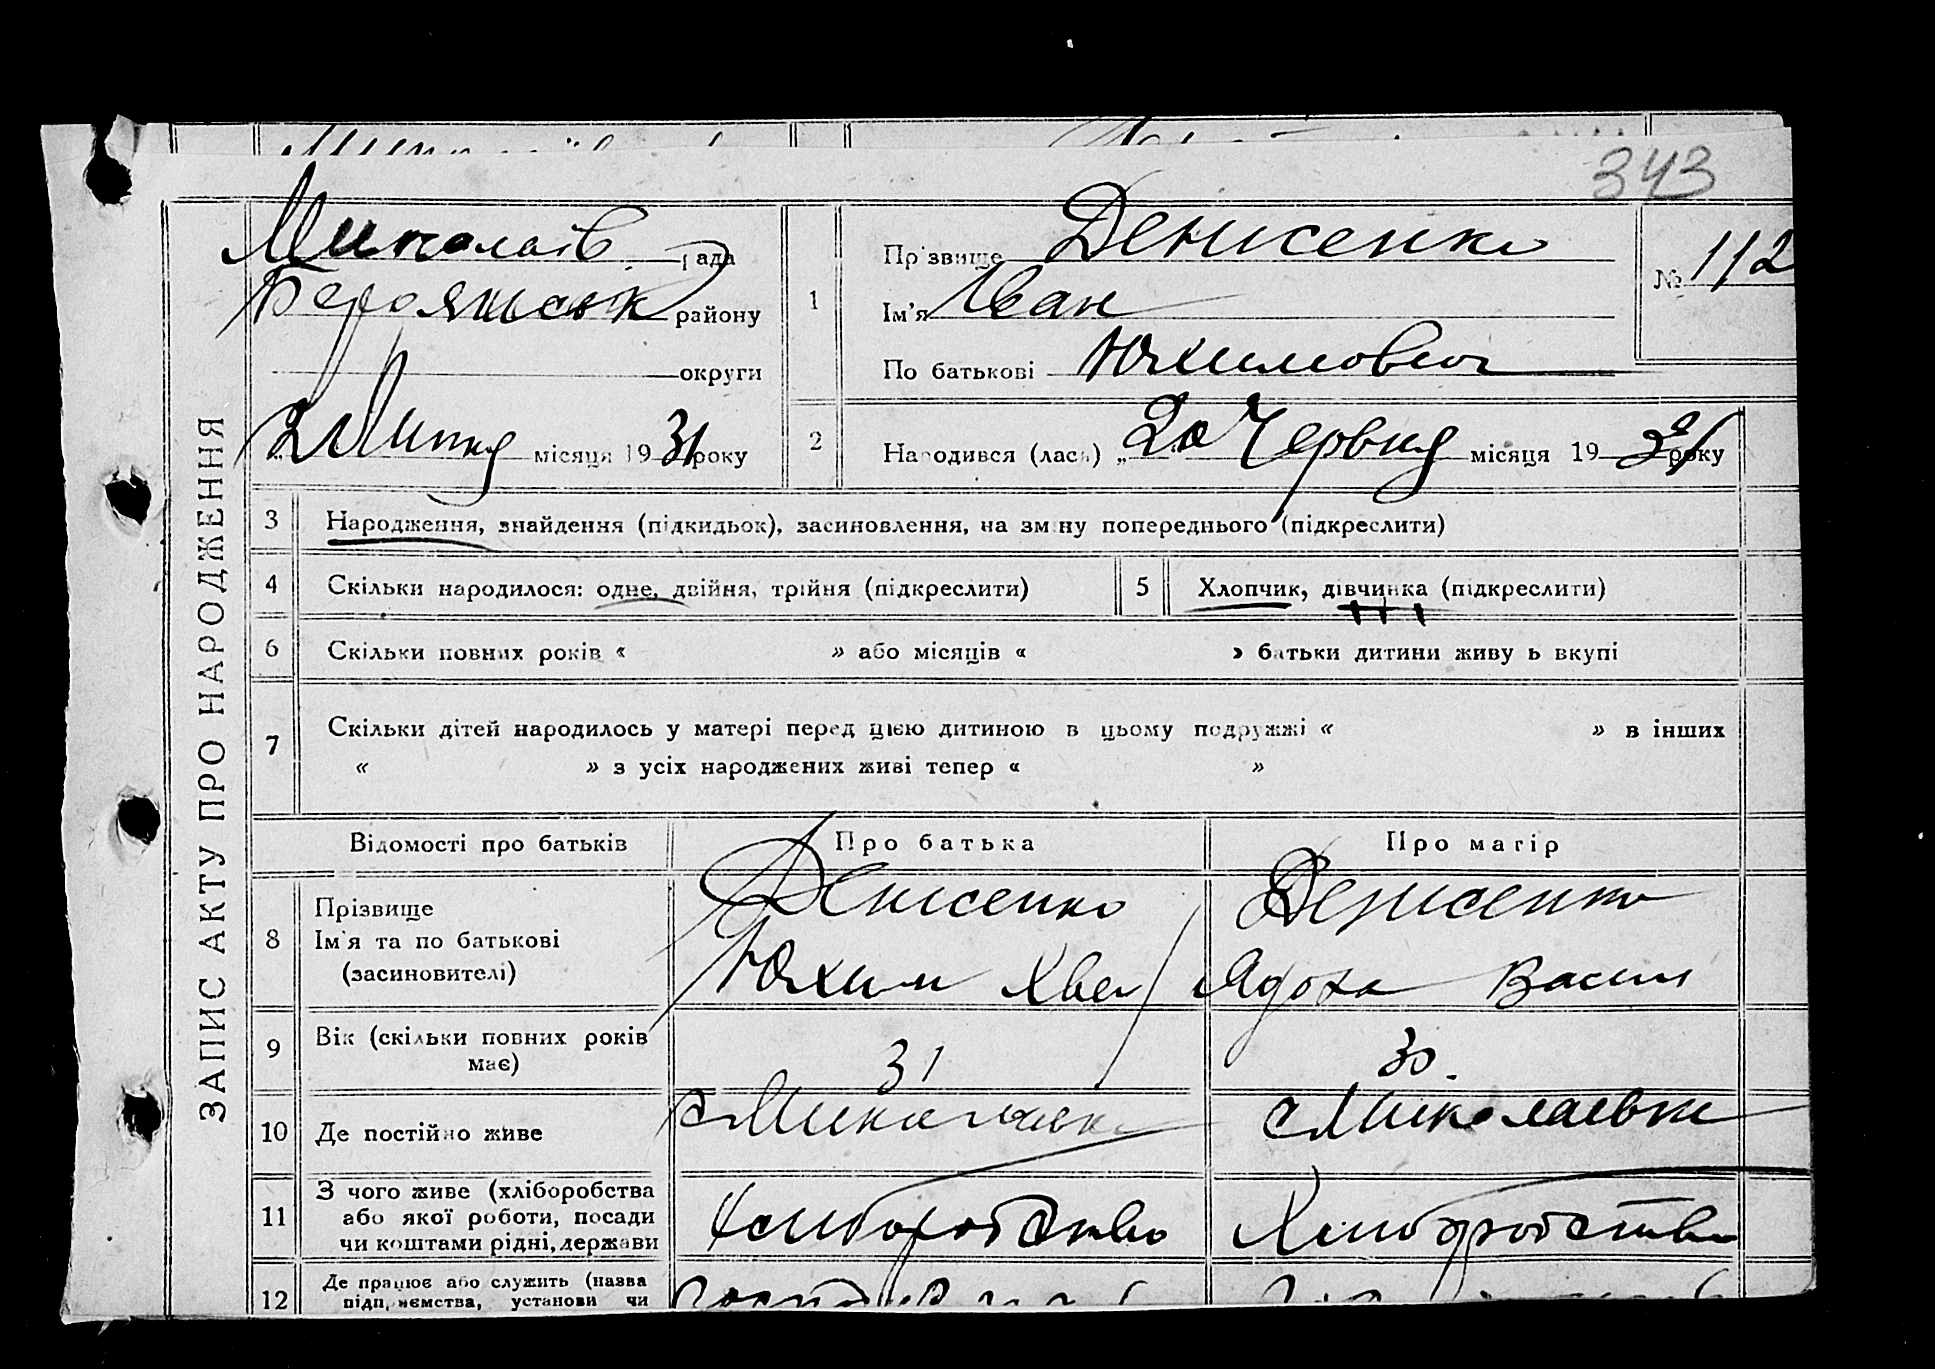 343
Миколаїв рада
Бердянськ району
округи
2 Липня місяця 1931 року
1
Прізвище Денисенко
Ім'я Іван
По батькові Юхимович
№ 112
2
Народився (лась) „20 Червня місяця 1931 року
ЗАПИС АКТУ ПРО НАРОДЖЕННЯ
3 Народження, знайдення (підкидьок), засиновлення, на зміну попереднього (підкреслити)
4 Скільки народилося: одне, двійня, трійня (підкреслити) 5 Хлопчик, дівчинка (підкреслити)
6 Скільки повних років « » або місяців « » батьки дитини живуть вкупі
7 Скільки дітей народилось у матері перед цією дитиною в цьому подружжі « » в інших
« » з усіх народжених живі тепер « »
Відомості про батьків Про батька Про матір
8 Прізвище
Ім'я та по батькові
(засиновителі)
Денисенко
Юхим Хвед
Денисенко
Ядоха Васил
9 Вік (скільки повних років
має)
31 30.
10 Де постійно живе с Миколаевка с Миколаевка
11 З чого живе (хліборобства
або якої роботи, посади
чи коштами рідні, держави
Хлиборобство Хлиборобство
12 Де працює або служить (назва
підприємства, установи чи